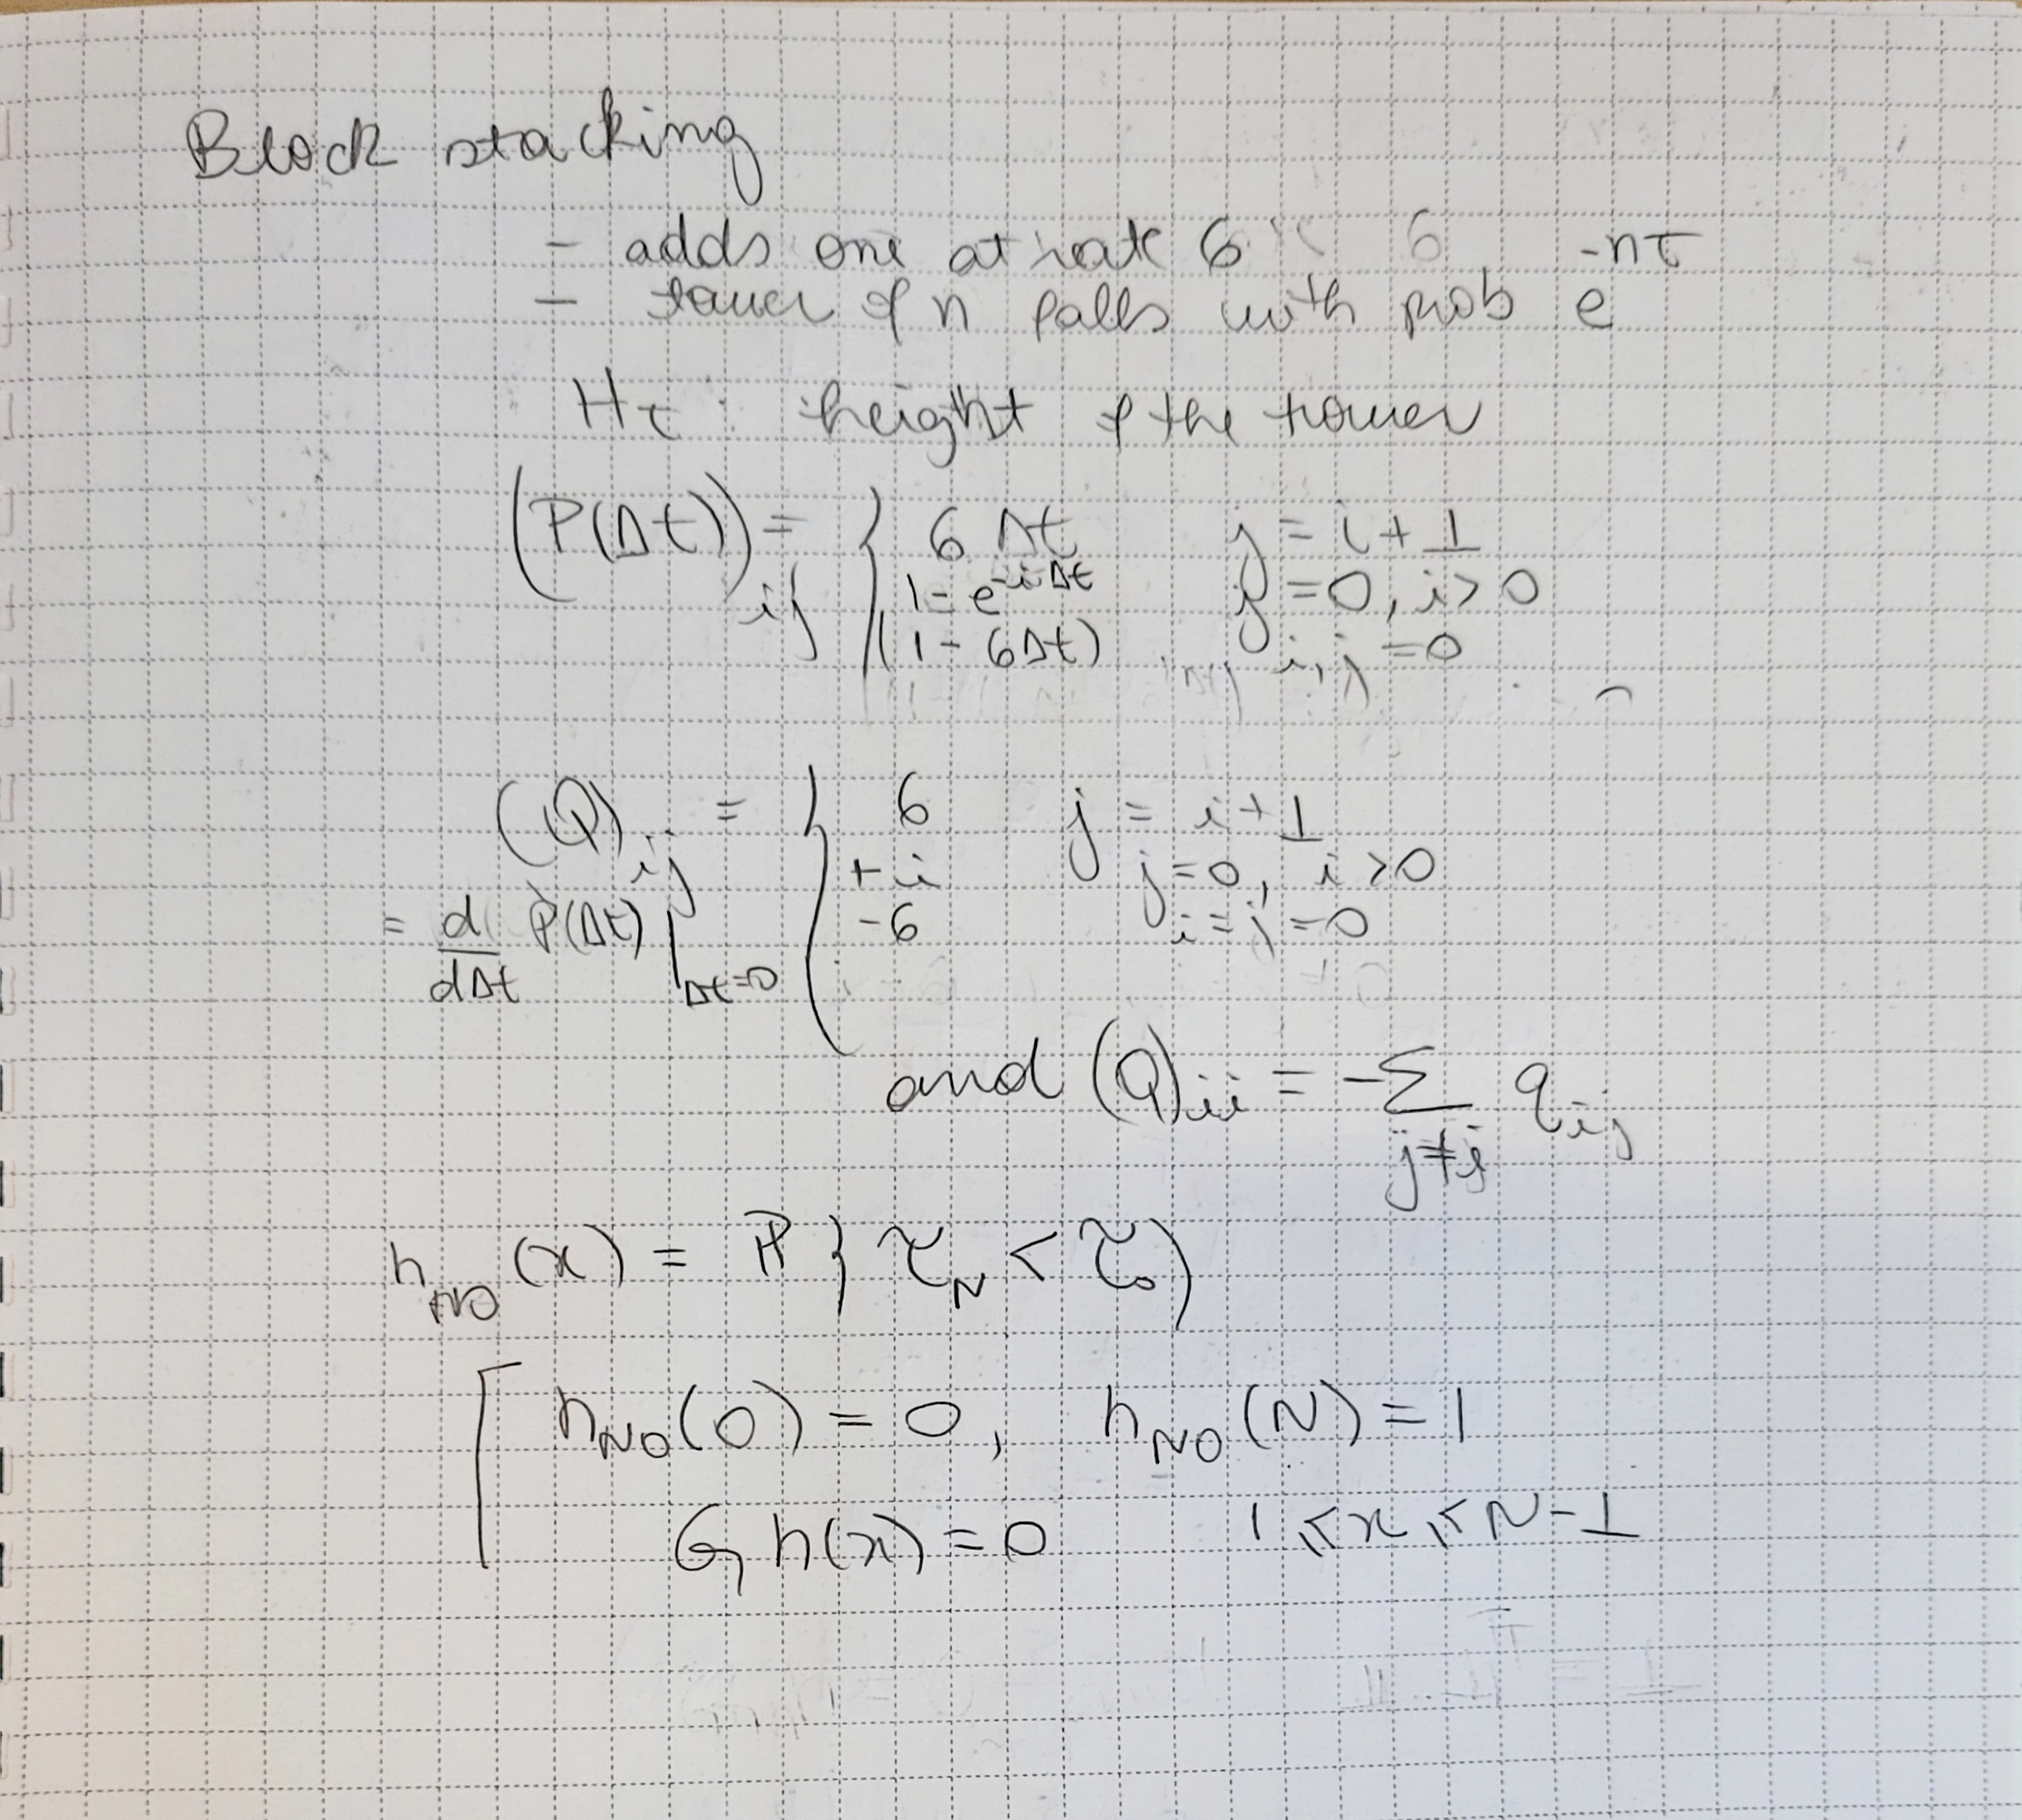 Block stacking
- adds one at rate 6
- tower of n falls with prob e^{-nτ}
H_τ : height of the tower
(P(Δt))_{ij} = { 6 Δt    j = i + 1
1 - e^{-iΔt}    j = 0, i > 0
(1 - 6Δt)    i, j = 0
(Q)_{ij} = { 6    j = i + 1
+ i    j = 0, i > 0
= d/dΔt P(Δt) |_{Δt=0}    -6    i = j = 0
and (Q)_{ii} = -Σ_{j≠i} q_{ij}
h_{N0}(x) = P{ τ_N < τ_0 )
[ h_{N0}(0) = 0, h_{N0}(N) = 1
G h(x) = 0    1 ≤ x ≤ N - 1